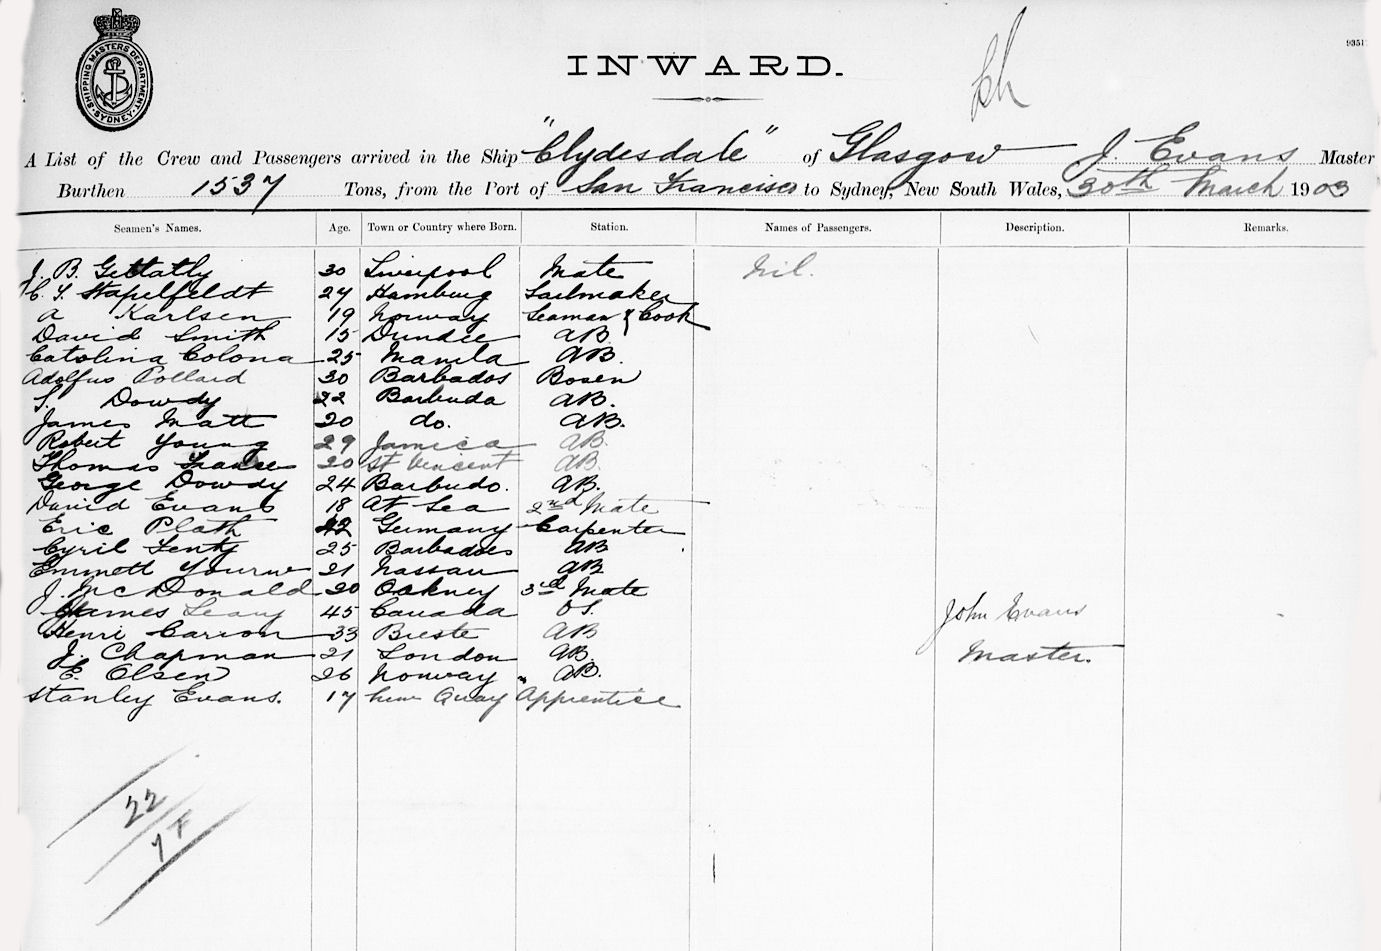 9351
SHIPPING MASTERS DEPARTMENT. SYDNEY.
INWARD.
A List of the Crew and Passengers arrived in the Ship "Clydesdale" of Glasgow J. Evans Master
Burthen 1537 Tons, from the Port of San Francisco to Sydney, New South Wales, 30th March 1903
Seamen's Names. Age. Town or Country where Born. Station. Names of Passengers. Description. Remarks.
J. B. Gellatly 30 Liverpool Mate Nil.
Stapelfeldt 27 Hamburg Sailmaker
A Karlsen 19 Norway Seaman & Cook
David Smith 15 Dundee AB.
Catolina Colona 25 Manila AB.
Adolfus Pollard 30 Barbados Bosen
S. Dowdy 22 Barbuda AB.
James Matt 20 do. AB.
Robert Young 29 Jamica AB.
Thomas 20 St Vincent AB.
George Dowdy 24 Barbudo. AB.
David Evans 18 At Sea 2nd Mate
Eric Plath 22 Germany Carpenter
Cyril 25 Barbadoes AB
Emmett 21 Nassau AB
J. McDonald 20 Oakney 3rd Mate
James Leany 45 Canada OS. John Evans
Henri Carron 33 Breste AB
J. Chapman 21 London AB. Master.
E. Olsen 26 Norway AB.
Stanley Evans. 17 New Quay Apprentice
22
7 F